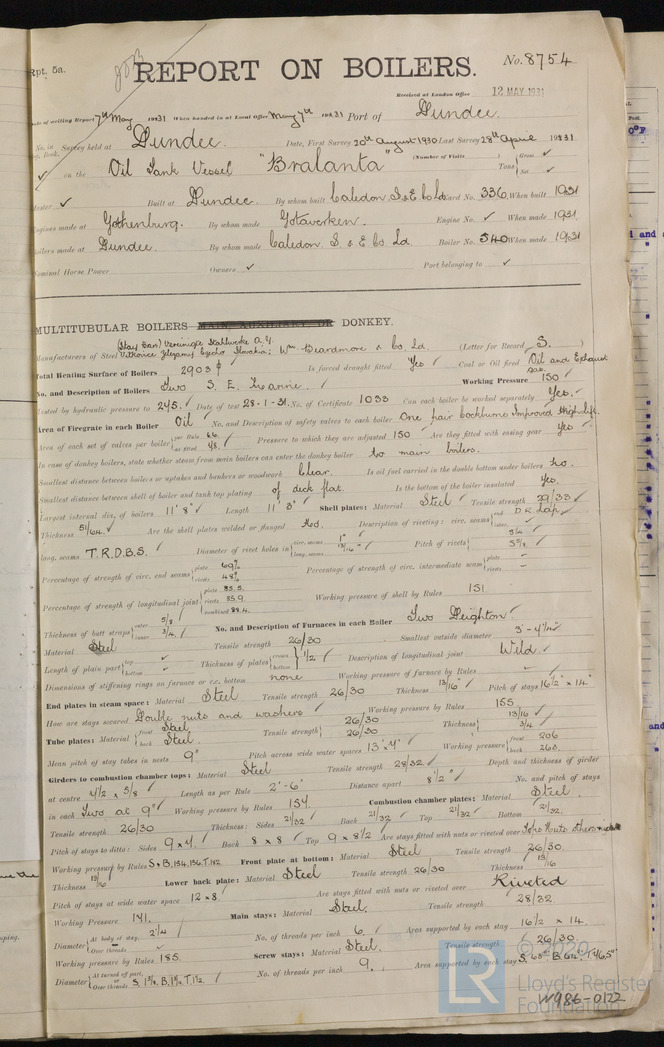 Rpt. 5a.
REPORT ON BOILERS.
No. 8754
Received at London Office 12 MAY 1931
Date of writing Report 7th May 1931 When handed in at Local Office May 7th 1931 Port of Dundee.
No. in Reg. Book. Survey held at Dundee. Date, First Survey 20th August 1930 Last Survey 28th April 1931
(Number of Visits
on the Oil Tank Vessel "Bralanta" Tons Gross Net
Master Built at Dundee. By whom built Caledon S. & E. Co Ld. Yard No. 336 When built 1931
Engines made at Gothenburg. By whom made Götaverken. Engine No. When made 1931
Boilers made at Dundee. By whom made Caledon S. & E. Co Ld. Boiler No. 540 When made 1931
Nominal Horse Power Owners Port belonging to
MULTITUBULAR BOILERS MAIN AUXILIARY OR DONKEY.
Manufacturers of Steel Wm Beardmore & Co Ld. (Letter for Record S.)
Total Heating Surface of Boilers 2903 Is forced draught fitted Yes Coal or Oil fired Oil and Exhaust gas.
No. and Description of Boilers Two S. E. Working Pressure 150
Tested by hydraulic pressure to 275. Date of test 28-1-31. No. of Certificate 1033 Can each boiler be worked separately Yes.
Area of Firegrate in each Boiler Oil No. and Description of safety valves to each boiler One pair Cockburns Improved High lift.
Area of each set of valves per boiler per Rule as fitted Pressure to which they are adjusted 150 Are they fitted with easing gear Yes
In case of donkey boilers, state whether steam from main boilers can enter the donkey boiler No main boilers.
Smallest distance between boilers or uptakes and bunkers or woodwork Clear. Is oil fuel carried in the double bottom under boilers No.
Smallest distance between shell of boiler and tank top plating of deck flat. Is the bottom of the boiler insulated Yes.
Largest internal dia. of boilers 11' 8" Length 11' 3" Shell plates: Material Steel Tensile strength 29/33
Thickness 51/64. Are the shell plates welded or flanged No. Description of riveting: circ. seams end D.R. Lap inter.
long. seams T.R.D.B.S. Diameter of rivet holes in circ. seams 1" long. seams 13/16" Pitch of rivets 3 1/4 5 5/8
Percentage of strength of circ. end seams plate 69% rivets 48% Percentage of strength of circ. intermediate seam plate rivets
Percentage of strength of longitudinal joint plate 85.5. rivets 85.9. combined 88.4. Working pressure of shell by Rules 151
Thickness of butt straps outer 5/8 inner 3/4. No. and Description of Furnaces in each Boiler Two Deighton
Material Steel Tensile strength 26/30 Smallest outside diameter 3' - 4 1/2"
Length of plain part top bottom Thickness of plates crown bottom 1/2 Description of longitudinal joint Weld.
Dimensions of stiffening rings on furnace or c.c. bottom none Working pressure of furnace by Rules
End plates in steam space: Material Steel Tensile strength 26/30 Thickness 13/16" Pitch of stays 16 1/2" x 14"
How are stays secured Double nuts and washers Working pressure by Rules 155
Tube plates: Material front Steel back Steel. Tensile strength 26/30 26/30 Thickness 13/16 3/4
Mean pitch of stay tubes in nests 9" Pitch across wide water spaces 13 x 9" Working pressure front 206 back 263.
Girders to combustion chamber tops: Material Steel Tensile strength 28/32. Depth and thickness of girder
at centre 7 1/2 x 5/8 Length as per Rule 2' - 6" Distance apart 8 1/2" No. and pitch of stays
in each Two at 9" Working pressure by Rules 157. Combustion chamber plates: Material Steel.
Tensile strength 26/30 Thickness: Sides 21/32 Back 21/32 Top 21/32 Bottom 21/32.
Pitch of stays to ditto: Sides 9 x 7. Back 8 x 8 Top 9 x 8 1/2 Are stays fitted with nuts or riveted over Tops Nuts, others riveted
Working pressure by Rules S & B. 154. 156. T. 152. Front plate at bottom: Material Steel Tensile strength 26/30.
Thickness 13/16 Lower back plate: Material Steel Tensile strength 26/30 Thickness 13/16
Pitch of stays at wide water space 12 x 8. Are stays fitted with nuts or riveted over Riveted
Working Pressure 171. Main stays: Material Steel. Tensile strength 28/32
Diameter At body of stay, Over threads 2 1/4 No. of threads per inch 6. Area supported by each stay 16 1/2 x 14.
Working pressure by Rules 185. Screw stays: Material Steel. Tensile strength 26/30.
Diameter At turned off part, Over threads S. 1 3/4. B. 1 1/2. T. 1 1/2. No. of threads per inch 9. Area supported by each stay
© 2020
LR
Lloyd's Register Foundation
W986-0122